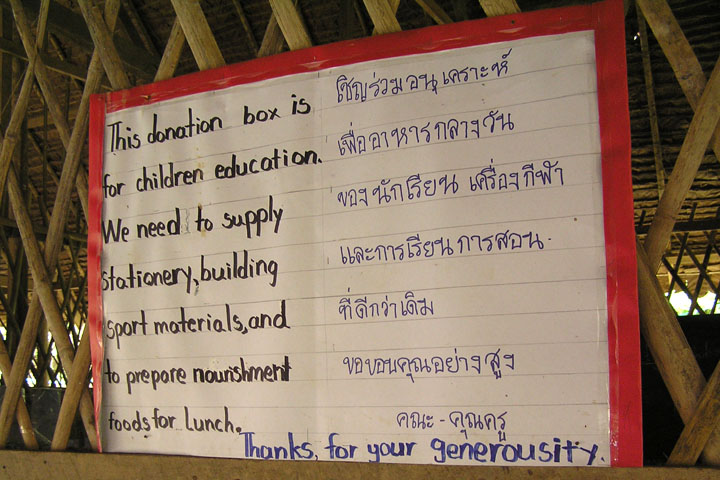 This donation box is
for children education.
We need to supply
stationery, building
sport materials, and
to prepare nourishment
foods for Lunch.
เชิญร่วมอนุเคราะห์
เพื่ออาหารกลางวัน
ของนักเรียน เครื่องกีฬา
และการเรียนการสอน
ที่ดีกว่าเดิม
ขอขอบคุณอย่างสูง
คณะ - คุณครู
Thanks, for your generousity.